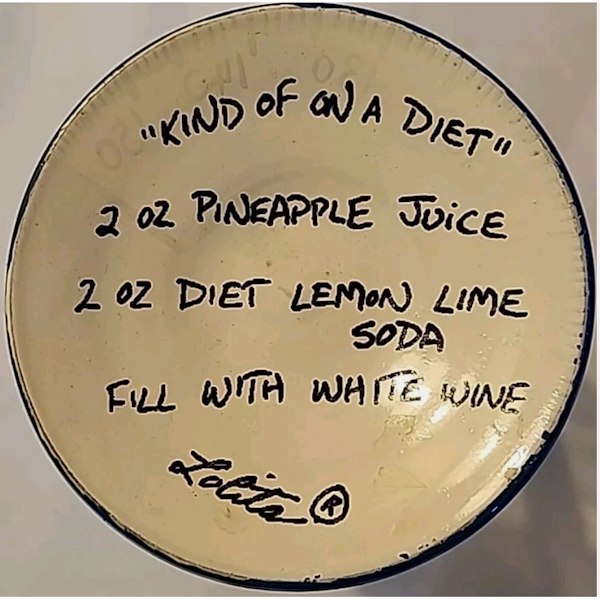 "KIND OF ON A DIET"
2 OZ PINEAPPLE JUICE
2 OZ DIET LEMON LIME
SODA
FILL WITH WHITE WINE
Lolita ®